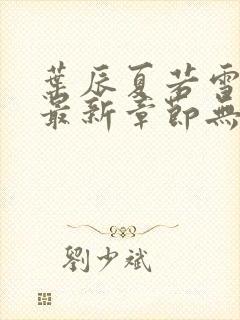 葉辰夏若雪
最新章節無
劉少斌